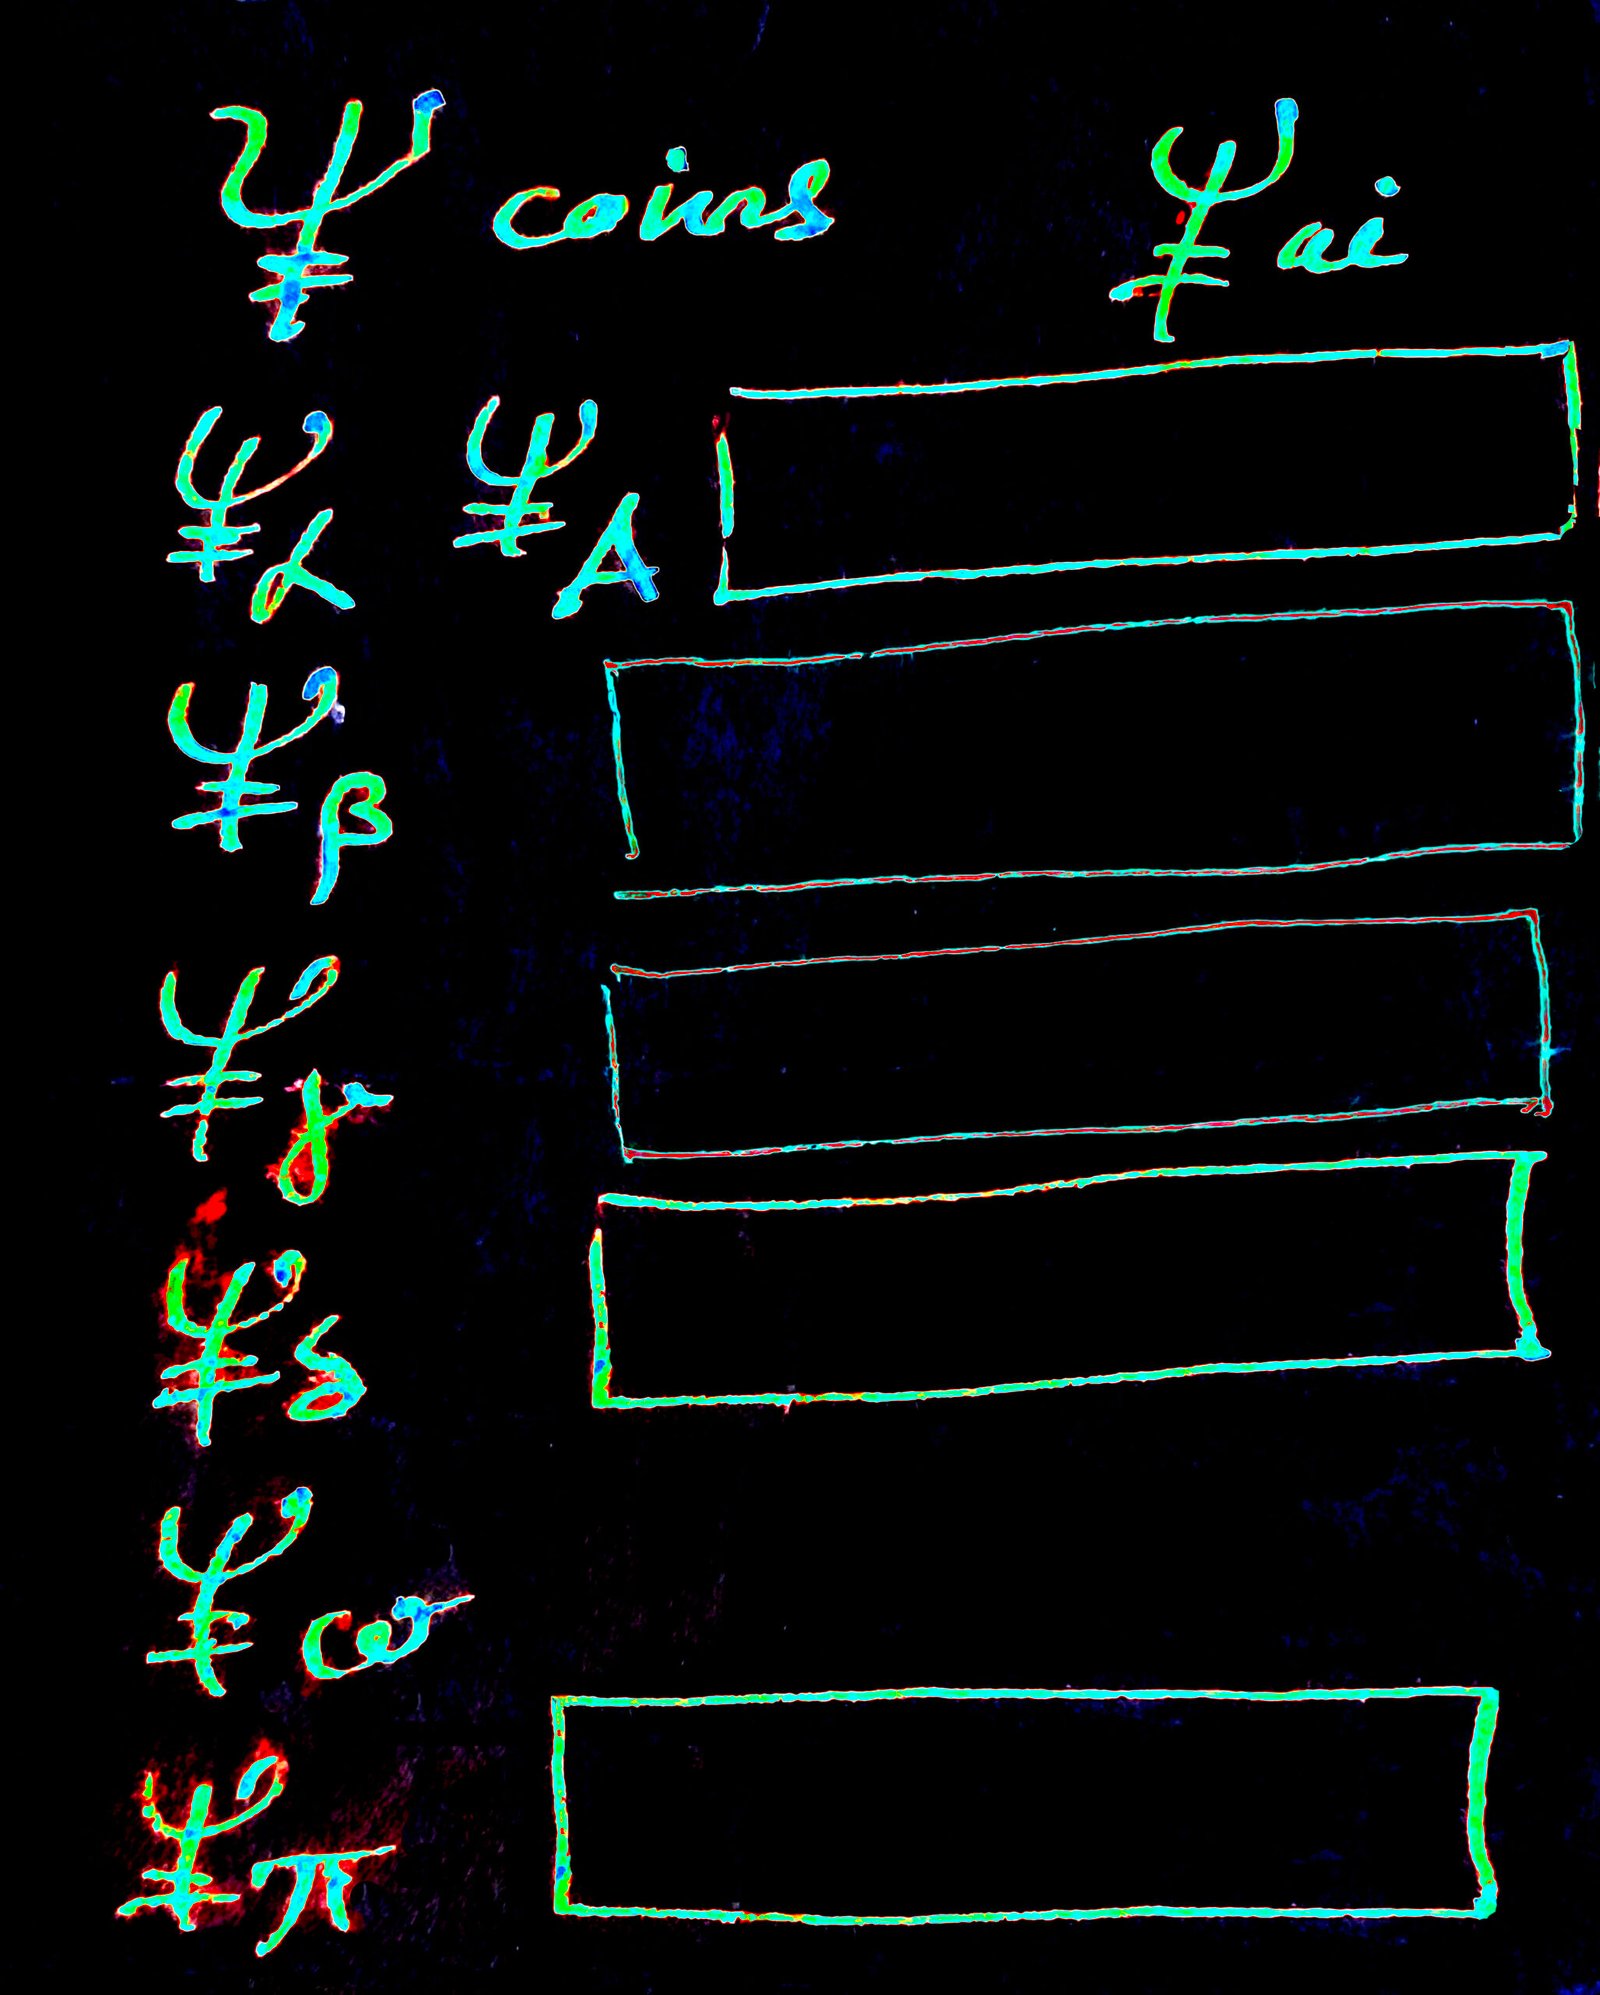 Ψ coins Ψ ai
Ψ α Ψ A
Ψ β
Ψ γ
Ψ δ
Ψ ω
Ψ π